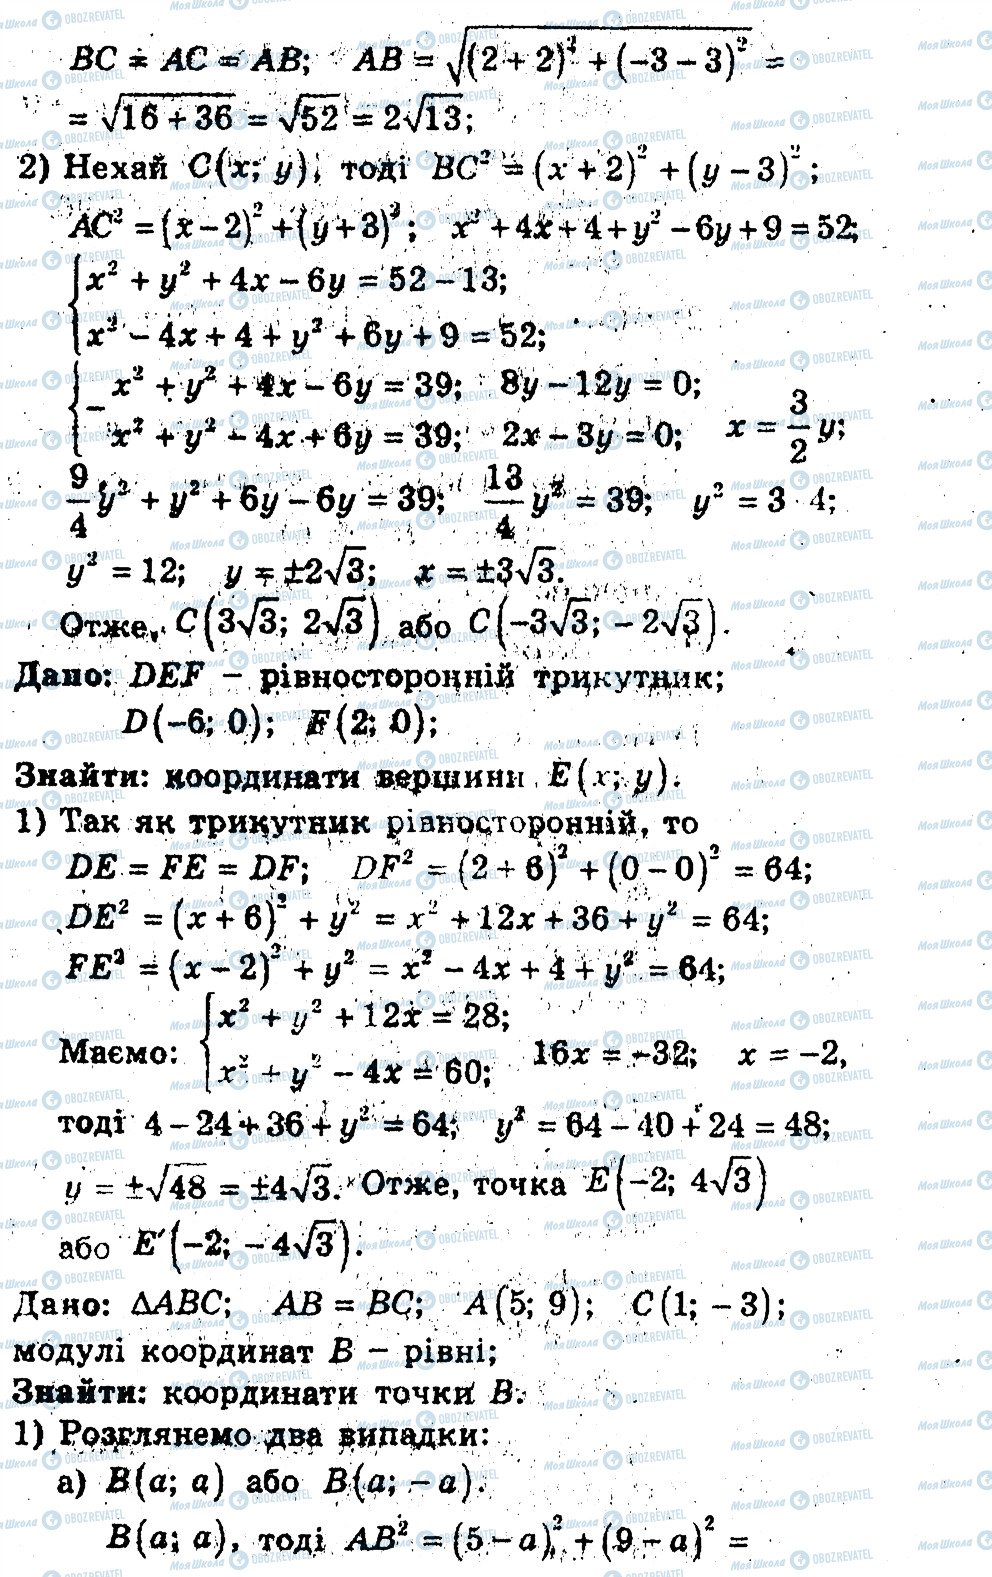 BC = AC = AB; AB = √((2 + 2)² + (−3 − 3)²) =
= √(16 + 36) = √52 = 2√13;
2) Нехай C(x; y), тоді BC² = (x + 2)² + (y − 3)²;
AC² = (x − 2)² + (y + 3)²; x² + 4x + 4 + y² − 6y + 9 = 52;
{x² + y² + 4x − 6y = 52 − 13;
x² − 4x + 4 + y² + 6y + 9 = 52;
{− x² + y² + 4x − 6y = 39; 8y − 12y = 0;
x² + y² − 4x + 6y = 39; 2x − 3y = 0; x = 3/2 y;
9/4 y² + y² + 6y − 6y = 39; 13/4 y² = 39; y² = 3 · 4;
y² = 12; y = ±2√3; x = ±3√3.
Отже, C(3√3; 2√3) або C(−3√3; −2√3).
Дано: DEF − рівносторонній трикутник;
D(−6; 0); F(2; 0);
Знайти: координати вершини E(x; y).
1) Так як трикутник рівносторонній, то
DE = FE = DF; DF² = (2 + 6)² + (0 − 0)² = 64;
DE² = (x + 6)² + y² = x² + 12x + 36 + y² = 64;
FE² = (x − 2)² + y² = x² − 4x + 4 + y² = 64;
Маємо: {x² + y² + 12x = 28;
x² + y² − 4x = 60; 16x = −32; x = −2,
тоді 4 − 24 + 36 + y² = 64; y² = 64 − 40 + 24 = 48;
y = ±√48 = ±4√3. Отже, точка E(−2; 4√3)
або E′(−2; −4√3).
Дано: ΔABC; AB = BC; A(5; 9); C(1; −3);
модулі координат B − рівні;
Знайти: координати точки B.
1) Розглянемо два випадки:
а) B(a; a) або B(a; −a).
B(a; a), тоді AB² = (5 − a)² + (9 − a)² =